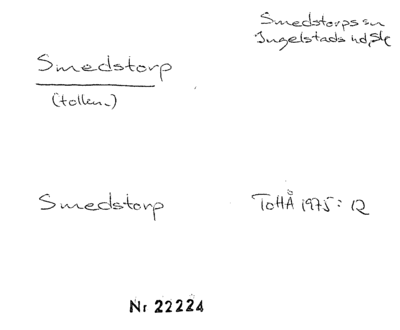 Smedstorps sn
Ingelstads hd, Sk
Smedstorp
(tolkn.)
Smedstorp
ToHÅ 1975: 12
Nr 22224